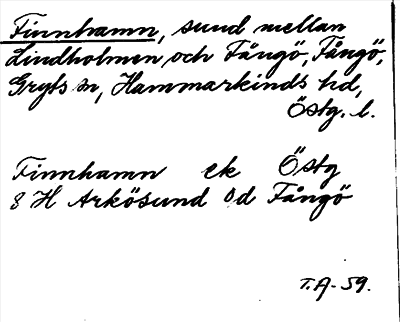 Finnhamn, sund mellan
Lindholmen och Fångö, Fångö,
Gryts sn, Hammarkinds hd,
Östg. l.
Finnhamn ek Östg
8 H Arkösund Od Fångö
T.A-59.